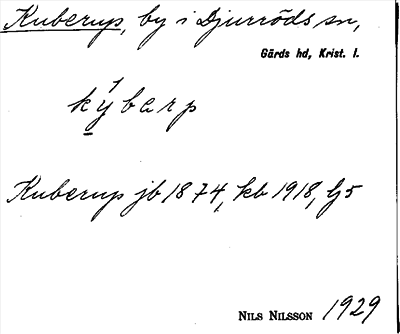 Kuberup, by i Djurröds sn,
Gärds hd, Krist. l.
kýbarp
Kuberup jb 1874, kb 1918, Gj5
NILS NILSSON 1929